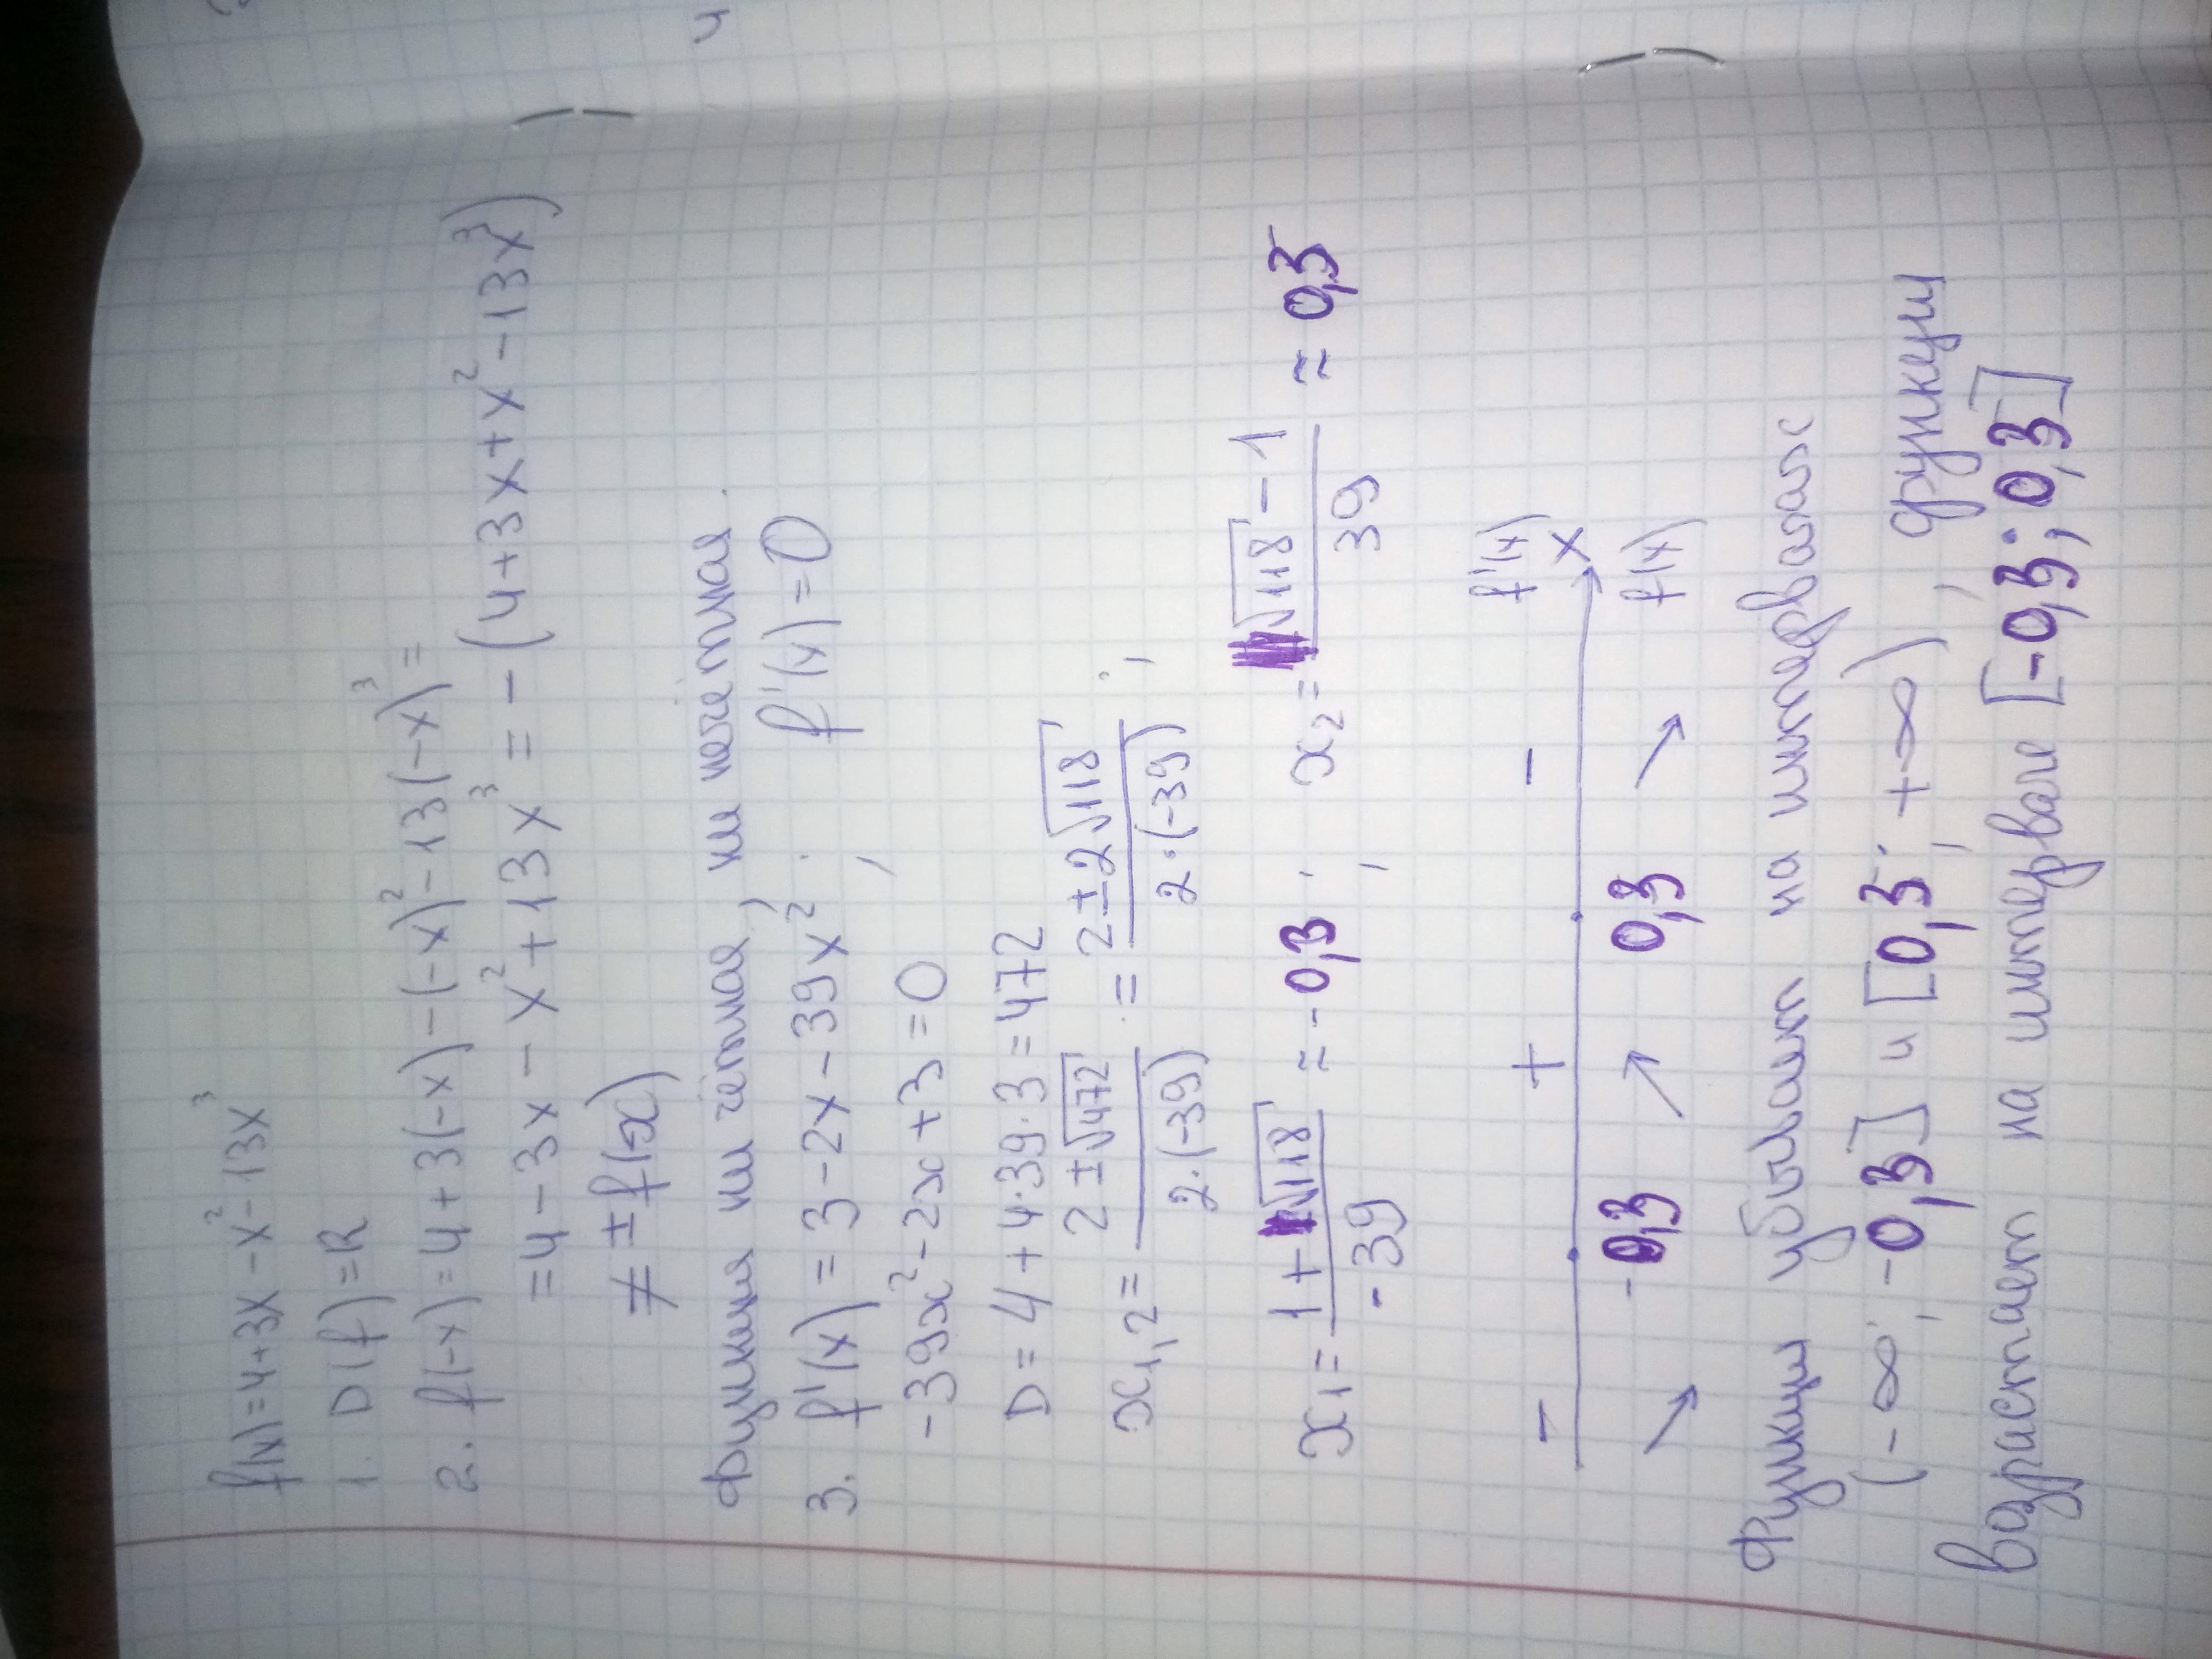 f(x)=4+3x-x²-13x³
1. D(f)=R
2. f(-x)=4+3(-x)-(-x)²-13(-x)³=
=4-3x-x²+13x³=-(4+3x+x²-13x³)
≠±f(x)
Функция ни чётная, ни нечётная.
3. f'(x)=3-2x-39x²; f'(x)=0
-39x²-2x+3=0
D=4+4·39·3=472
x1,2=(2±√472)/(2·(-39))=(2±2√118)/(2·(-39));
x1=(1+√118)/(-39)≈-0,3; x2=(√118-1)/39≈0,3
- + - f'(x)
x
↘ -0,3 ↗ 0,3 ↘ f(x)
Функции убывает на интервалах
(-∞;-0,3] и [0,3;+∞), функции
возрастает на интервале [-0,3;0,3]